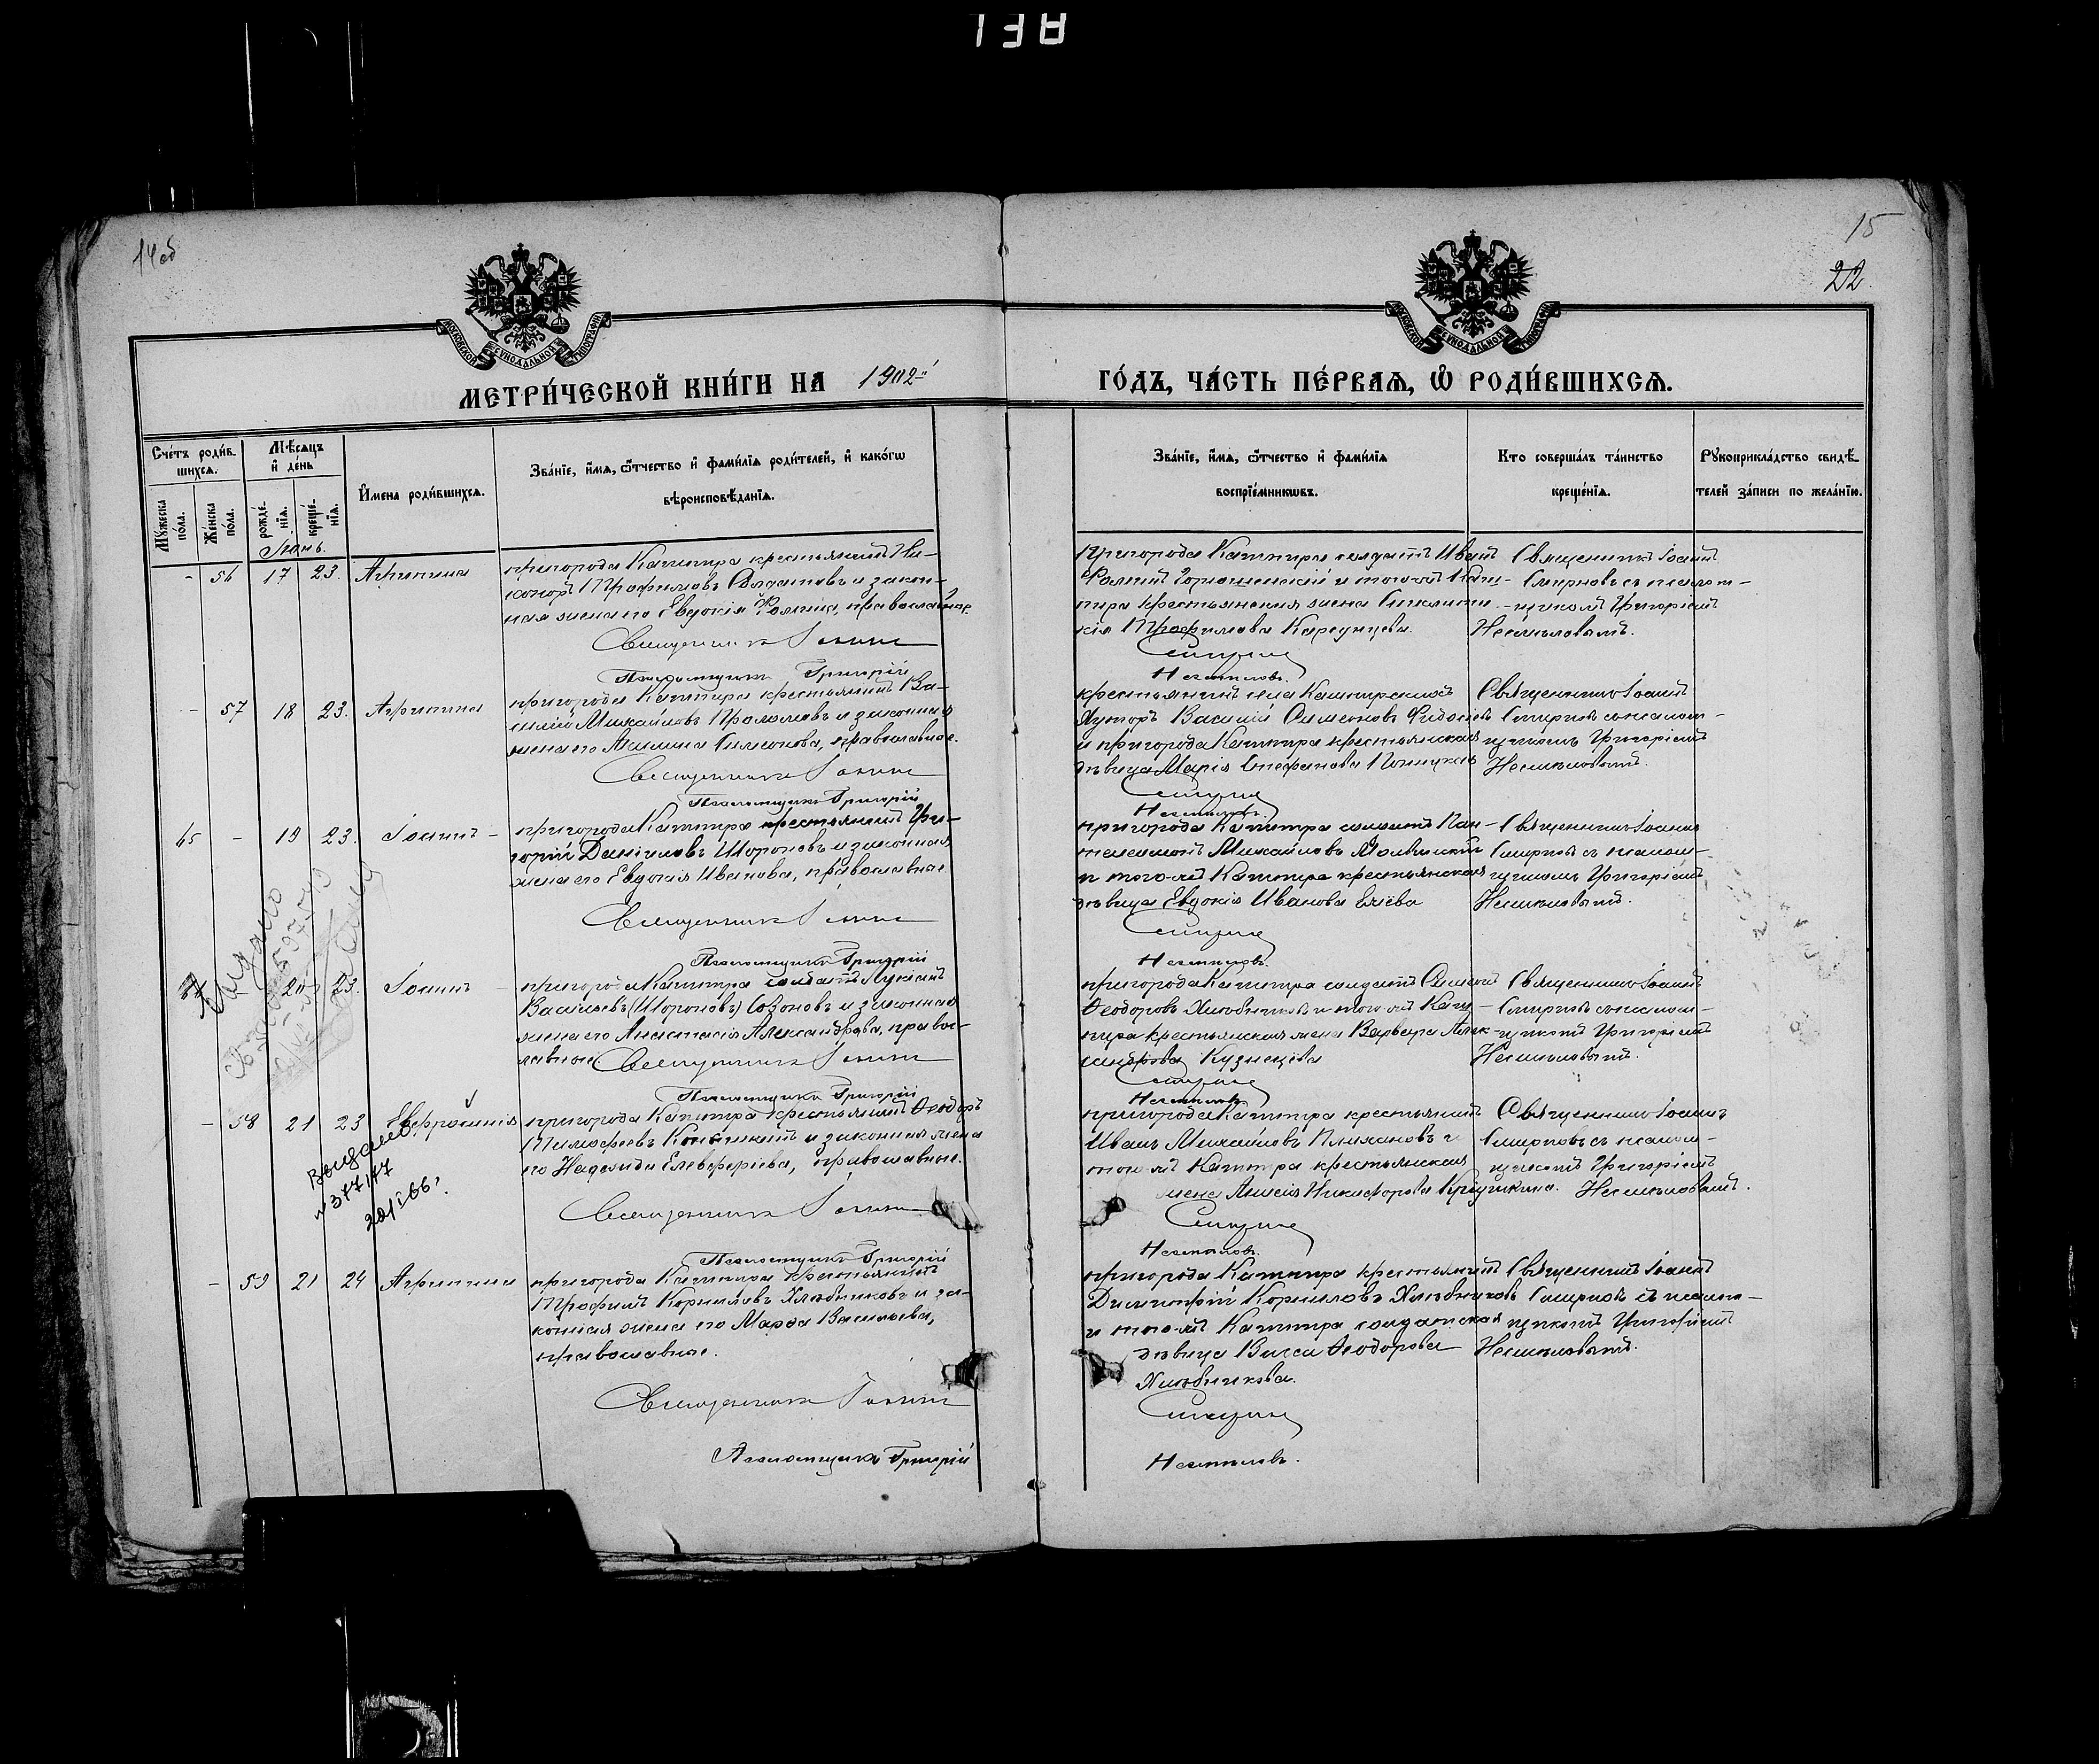 138
14 об
15
22.
МЕТРИ́ЧЕСКОЙ КНИ́ГИ НА 1902й
ГО́ДЪ, ЧА́СТЬ ПЕ́РВАѦ, Ѽ РОДИ́ВШИХСѦ.
Сче́тъ роди́вшихсѧ.
Мѣ́сѧцъ и де́нь
Мꙋжеска по́ла.
Же́нска по́ла.
рожде́нїѧ.
креще́нїѧ.
И҆мена роди́вшихсѧ.
Зва́нїе, и҆́мѧ, ѻ҆́тчество и҆ фами́лїѧ роди́телей, и҆ како́гѡ
вѣроисповѣ́данїѧ.
Зва́нїе, и҆́мѧ, ѻ҆́тчество и҆ фами́лїѧ
воспрїе́мникѡвъ.
Кто соверша́лъ та́инство
креще́нїѧ.
Рꙋкоприкла́дство свидѣ́телей за́писи по жела́нїю.
Іюнь.
- 56 17 23. Агрипина
пригорода Каштира крестьянинъ Ни-
коноръ Трофимовъ Солдатовъ и закон-
ная жена его Евдокія Фомина, православные
Священникъ Іоаннъ
Псаломщикъ Григорій
Пригорода Каштира солдатъ Иванъ
кія Трофимова
Смирновъ
Несмеловъ.
Священникъ Іоаннъ
Смирновъ съ псалом-
щикомъ Григоріемъ
Несмѣловымъ.
- 57 18 23. Агрипина
пригорода Каштира крестьянинъ Ва-
силій Михайловъ и законная
жена его Симеонова, православные.
Священникъ Іоаннъ
Псаломщикъ Григорій
крестьянинъ
Хуторъ Василій Симеоновъ
и пригорода Каштира крестьянская
дѣвица Марія Стефанова
Смирновъ
Несмеловъ.
Священникъ Іоаннъ
Смирновъ съ псалом-
щикомъ Григоріемъ
Несмѣловымъ.
65 - 19 23. Іоаннъ
пригорода Каштира крестьянинъ Гри-
горій Даніиловъ Шороновъ и законная
жена его Евдокія Иванова, православные
Священникъ Іоаннъ
Псаломщикъ Григорій
пригорода Каштира солдатъ Пан-
телеимонъ Михайловъ
и того-же Каштира крестьянская
дѣвица Евдокія Иванова
Смирновъ
Несмеловъ.
Священникъ Іоаннъ
Смирновъ съ псалом-
щикомъ Григоріемъ
Несмѣловымъ.
20 23. Іоаннъ
пригорода Каштира солдатъ Лукіанъ
Васильевъ (Шороновъ) Созоновъ и законная
жена его Анастасія Александрова, правос-
лавные Священникъ Іоаннъ
Псаломщикъ Григорій
пригорода Каштира солдатъ Симеонъ
Ѳеодоровъ Хлѣбниковъ и того-же Каш-
тира крестьянская жена Варвара Алек-
сандрова Кузнецова
Смирновъ
Несмеловъ
Священникъ Іоаннъ
Смирновъ съ псалом-
щикомъ Григоріемъ
Несмѣловымъ.
Выдано
- 58 21 23 Евфросинія
пригорода Каштира крестьянинъ Ѳеодоръ
Тимофеевъ и законная жена
его Надежда Елевферіева, православные.
Священникъ Іоаннъ
Псаломщикъ Григорій
пригорода Каштира крестьянинъ
Иванъ Михайловъ и
того-же Каштира крестьянская
жена Никифорова
Смирновъ
Несмеловъ.
Священникъ Іоаннъ
Смирновъ съ псалом-
щикомъ Григоріемъ
Несмѣловымъ.
Выдано
№ 377/17
20/I 66г.
- 59 21 24 Агрипина
пригорода Каштира крестьянинъ
Трофимъ Корниловъ Хлѣбниковъ и за-
конная жена его Марѳа Васильева,
православные.
Священникъ Іоаннъ
Псаломщикъ Григорій
пригорода Каштира крестьянинъ
Димитрій Корниловъ Хлѣбниковъ
и того-же Каштира солдатская
дѣвица Васса Ѳеодорова
Хлѣбникова.
Смирновъ
Несмеловъ.
Священникъ Іоаннъ
Смирновъ съ псалом-
щикомъ Григоріемъ
Несмѣловымъ.